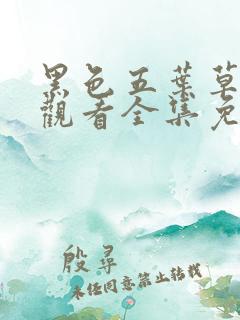 黑色五葉草
觀看全集免
殷尋
未经同意禁止转载